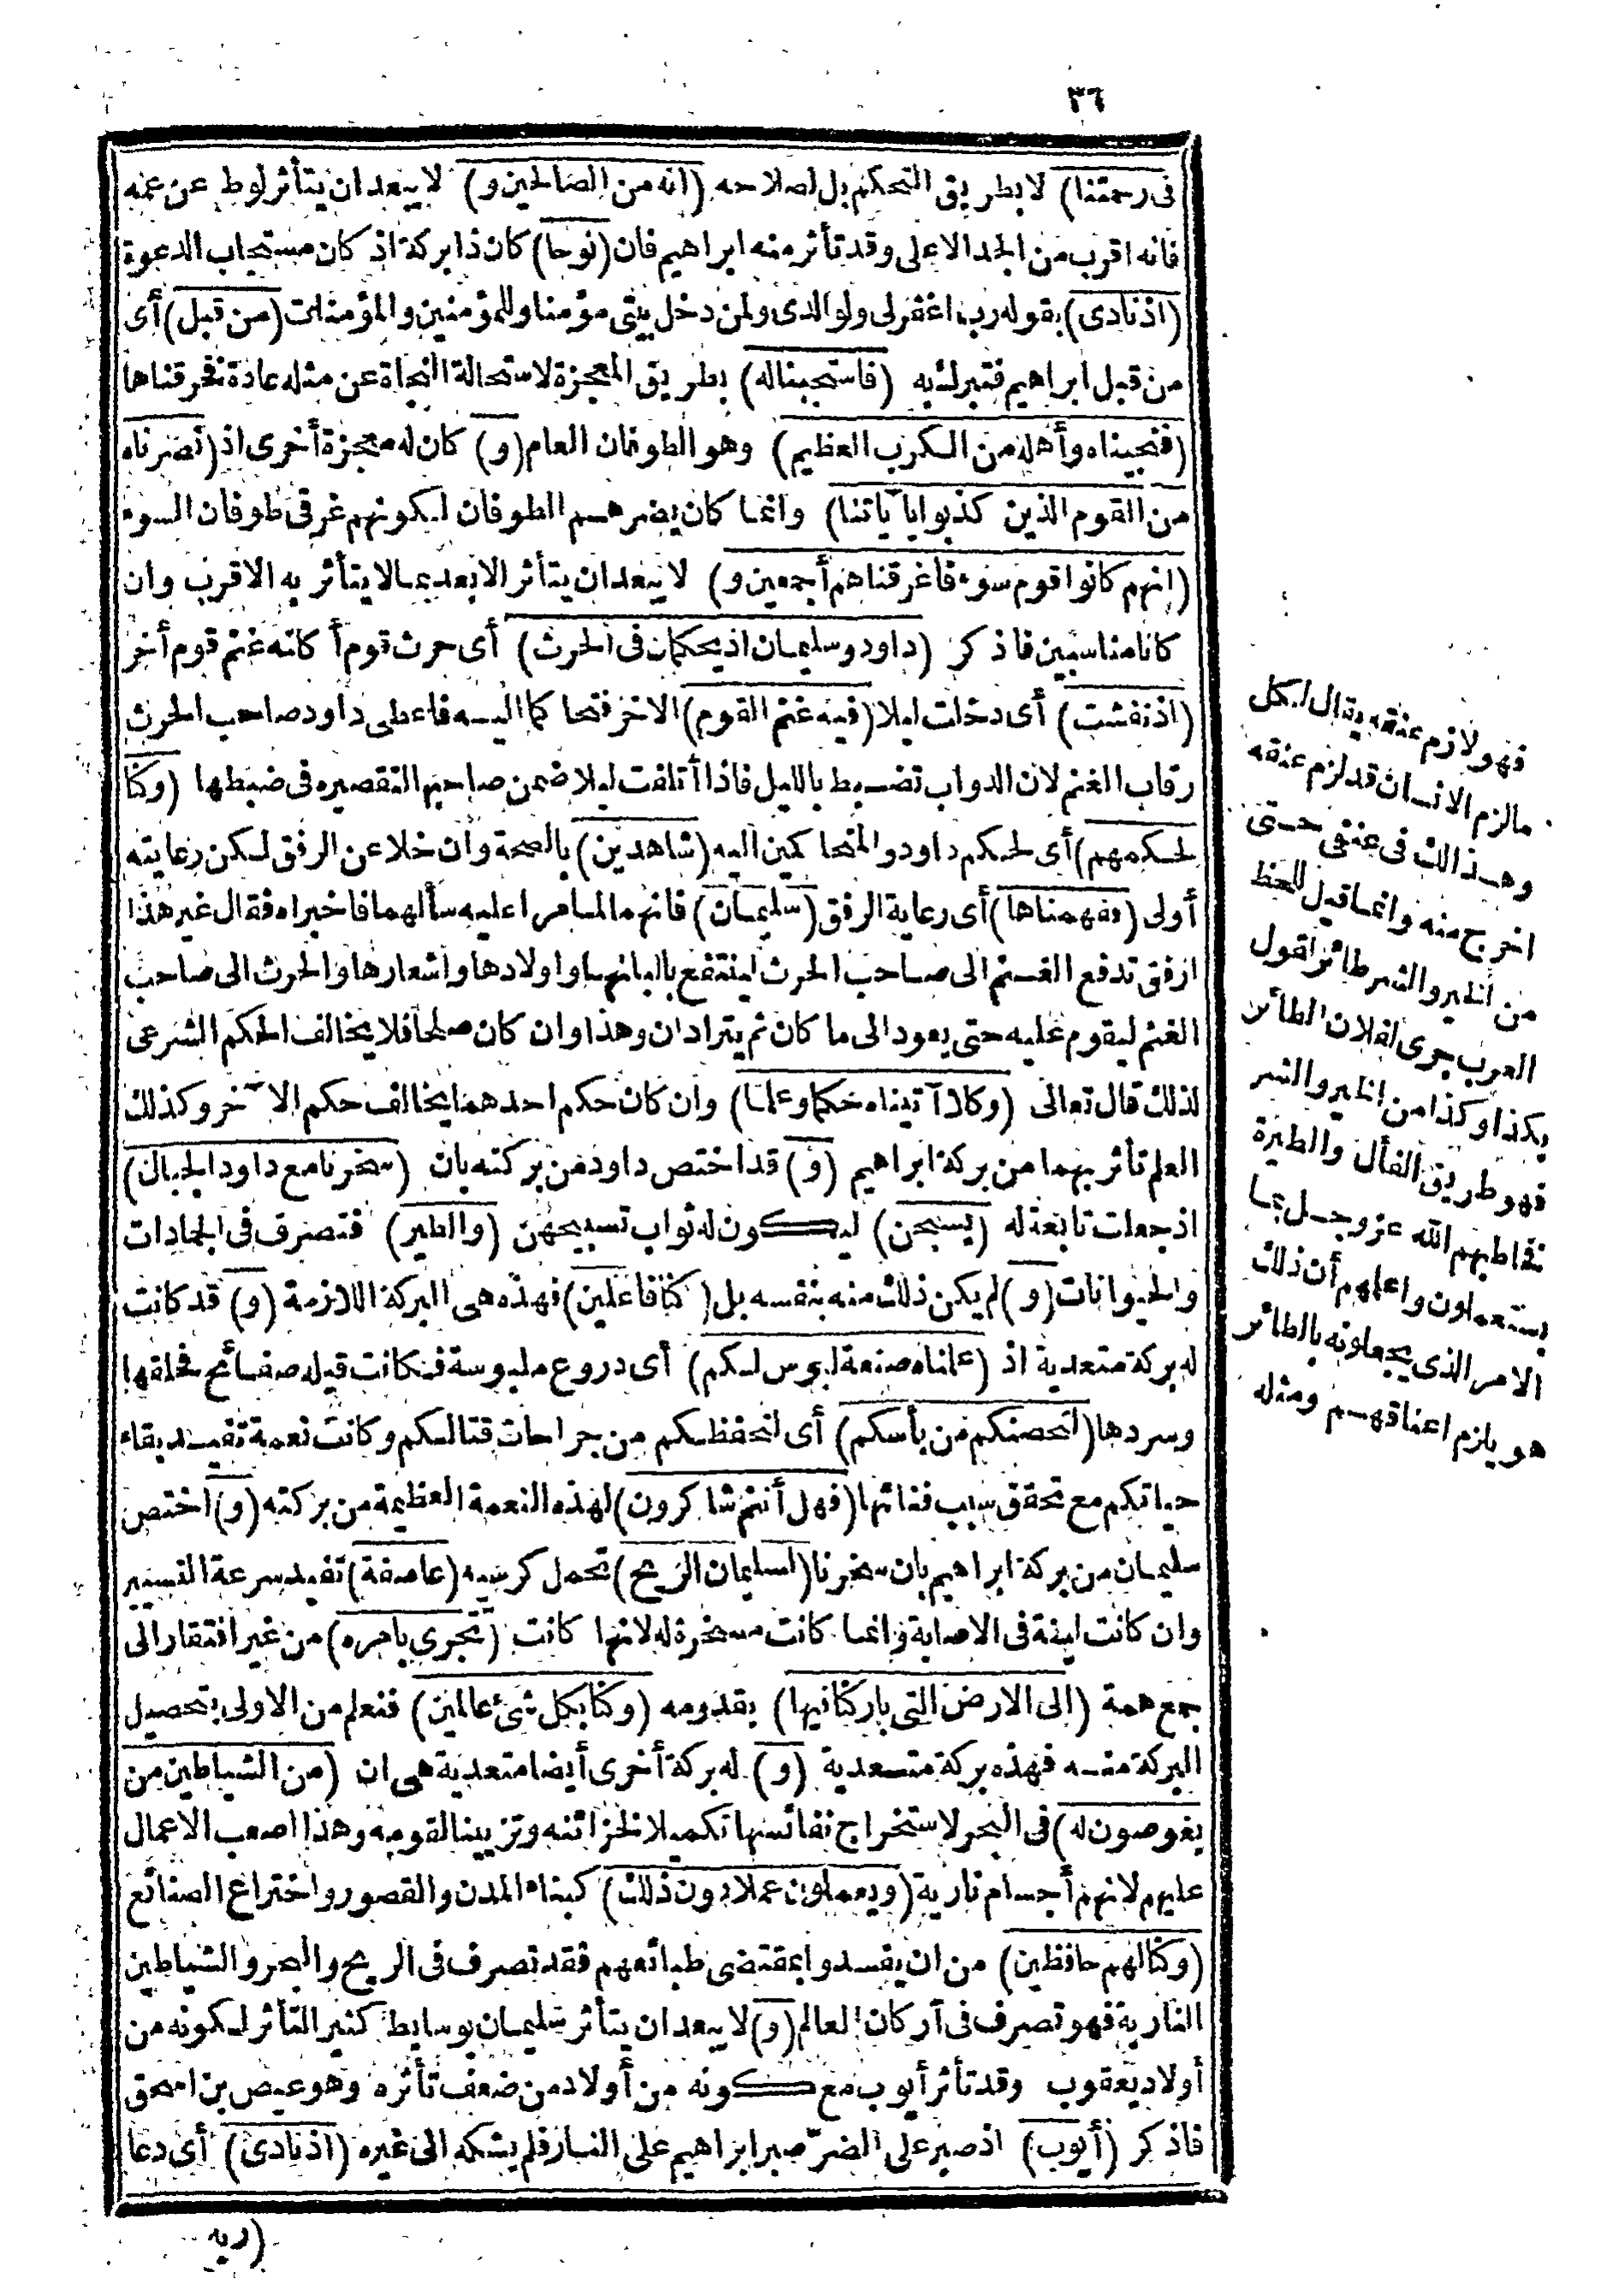 ٣٦
فى رحمتنا) لا بطريق التحكم بل لصلاحه (انه من الصالحين و) لا يبعد ان يتأثر لوط عن عمه
فانه اقرب من الجد الاعلى وقد تأثر منه ابراهيم فان (نوحا) كان ذا بركة اذ كان مستجاب الدعوة
(اذ نادى) بقوله رب اغفر لى ولوالدى ولمن دخل بيتى مؤمنا وللمؤمنين والمؤمنات (من قبل) أى
من قبل ابراهيم فتبرك به (فاستجبنا له) بطريق المعجزة لاستحالة النجاة عن مثله عادة فخرقناها
(فنجيناه وأهله من الكرب العظيم) وهو الطوفان العام (و) كان له معجزة أخرى اذ (نصرناه
من القوم الذين كذبوا بآياتنا) وانما كان يضرهم الطوفان لكونهم غرقى طوفان السوء
(انهم كانوا قوم سوء فاغرقناهم أجمعين و) لا يبعد ان يتأثر الابعد بما لا يتأثر به الاقرب وان
كانا مناسبين فاذكر (داود وسليمان اذ يحكمان فى الحرث) أى حرث قوم أكلته غنم قوم أخر
(اذ نفشت) أى دخلت ليلا (فيه غنم القوم) الاخر فتحاكما اليه فاعطى داود صاحب الحرث
رقاب الغنم لان الدواب تضبط بالليل فاذا أتلفت ليلا ضمن صاحبها لتقصيره فى ضبطها (وكنا
لحكمهم) أى لحكم داود والمتحاكمين اليه (شاهدين) بالصحة وان خلا عن الرفق لكن رعايته
أولى (ففهمناها) أى رعاية الرفق (سليمان) فانهما لما مرا عليه سألهما فاخبراه فقال غير هذا
ارفق تدفع الغنم الى صاحب الحرث لينتفع بالبانها واولادها واشعارها والحرث الى صاحب
الغنم ليقوم عليه حتى يعود الى ما كان ثم يترادان وهذا وان كان صلحا فلا يخالف الحكم الشرعى
لذلك قال تعالى (وكلا آتيناه حكما وعلما) وان كان حكم احدهما يخالف حكم الآخر وكذلك
العلم تأثر بهما من بركة ابراهيم (و) قد اختص داود من بركته بان (سخرنا مع داود الجبال)
اذ جعلت تابعة له (يسبحن) ليكون له ثواب تسبيحهن (والطير) فتصرف فى الجمادات
والحيوانات (و) لم يكن ذلك منه بنفسه بل (كنا فاعلين) فهذه هى البركة اللازمة (و) قد كانت
له بركة متعدية اذ (علمناه صنعة لبوس لكم) أى دروع ملبوسة فكانت قبله صفائح فحلقها
وسردها (لتحصنكم من بأسكم) أى لتحفظكم من جراحات قتالكم وكانت نعمة تفيد بقاء
حياتكم مع تحقق سبب فنائها (فهل أنتم شاكرون) لهذه النعمة العظيمة من بركته (و) اختص
سليمان من بركة ابراهيم بان سخرنا (لسليمان الريح) تحمل كرسيه (عاصفة) تفيد سرعة التسيير
وان كانت لينة فى الاصابة وانما كانت مسخرة له لانها كانت (تجرى بامره) من غير افتقار الى
جمع همة (الى الارض التى باركنا فيها) بقدومه (وكنا بكل شئ عالمين) فنعلم من الاولى بتحصيل
البركة منه فهذه بركة متعدية (و) له بركة أخرى أيضا متعدية هى ان (من الشياطين من
يغوصون له) فى البحر لاستخراج نفائسها تكميلا لخزائنه وتزيينا لقومه وهذا اصعب الاعمال
عليهم لانهم أجسام نارية (ويعملون عملا دون ذلك) كبناء المدن والقصور واختراع الصنائع
(وكنا لهم حافظين) من ان يفسدوا بمقتضى طبائعهم فقد تصرف فى الريح والبحر والشياطين
النارية فهو تصرف فى أركان العالم (و) لا يبعد ان يتأثر سليمان بوسايط كثير التأثر لكونه من
أولاد يعقوب وقد تأثر أيوب مع كونه من أولاد من ضعف تأثره وهو عيص بن اسحق
فاذكر (أيوب) اذ صبر على الضرّ صبر ابراهيم على النار فلم يشكه الى غيره (اذ نادى) أى دعا
(ربه
فهو لازم عنقه يقال لكل
مالزم الانسان قد لزم عنقه
وهذالك فى عنقى حتى
اخرج منه وانما قيل للحظ
من الخير والشر طائر لقول
العرب جرى لفلان الطائر
بكذا وكذا من الخير والشر
فهو طريق الفأل والطيرة
فخاطبهم الله عز وجل بما
يستعملون واعلمهم أن ذلك
الامر الذى يجعلونه بالطائر
هو يلزم اعناقهم ومثله